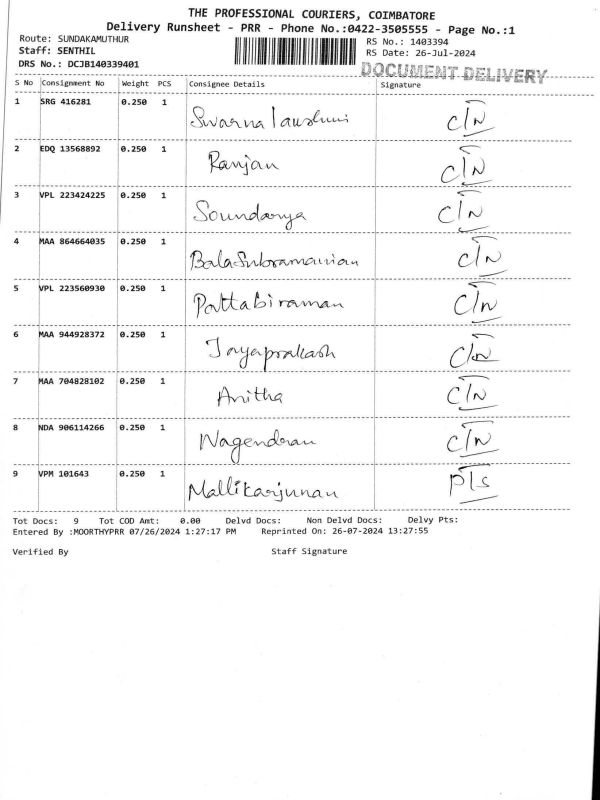 THE PROFESSIONAL COURIERS, COIMBATORE
Delivery Runsheet - PRR - Phone No.:0422-3505555 - Page No.:1
Route: SUNDAKAMUTHUR RS No.: 1403394
Staff: SENTHIL RS Date: 26-Jul-2024
DRS No.: DCJB140339401 DOCUMENT DELIVERY
S No Consignment No Weight PCS Consignee Details Signature
1 SRG 416281 0.250 1 Swarna laushmi C/N
2 EDQ 13568892 0.250 1 Ranjan C/N
3 VPL 223424225 0.250 1 Soundarya C/N
4 MAA 864664035 0.250 1 BalaSubramanian C/N
5 VPL 223560930 0.250 1 Pattabiraman C/N
6 MAA 944928372 0.250 1 Jayaprakash C/N
7 MAA 704828102 0.250 1 Anitha C/N
8 NDA 906114266 0.250 1 Nagendran C/N
9 VPM 101643 0.250 1 Mallikarjunan P/S
Tot Docs: 9 Tot COD Amt: 0.00 Delvd Docs: Non Delvd Docs: Delvy Pts:
Entered By :MOORTHYPRR 07/26/2024 1:27:17 PM Reprinted On: 26-07-2024 13:27:55
Verified By Staff Signature